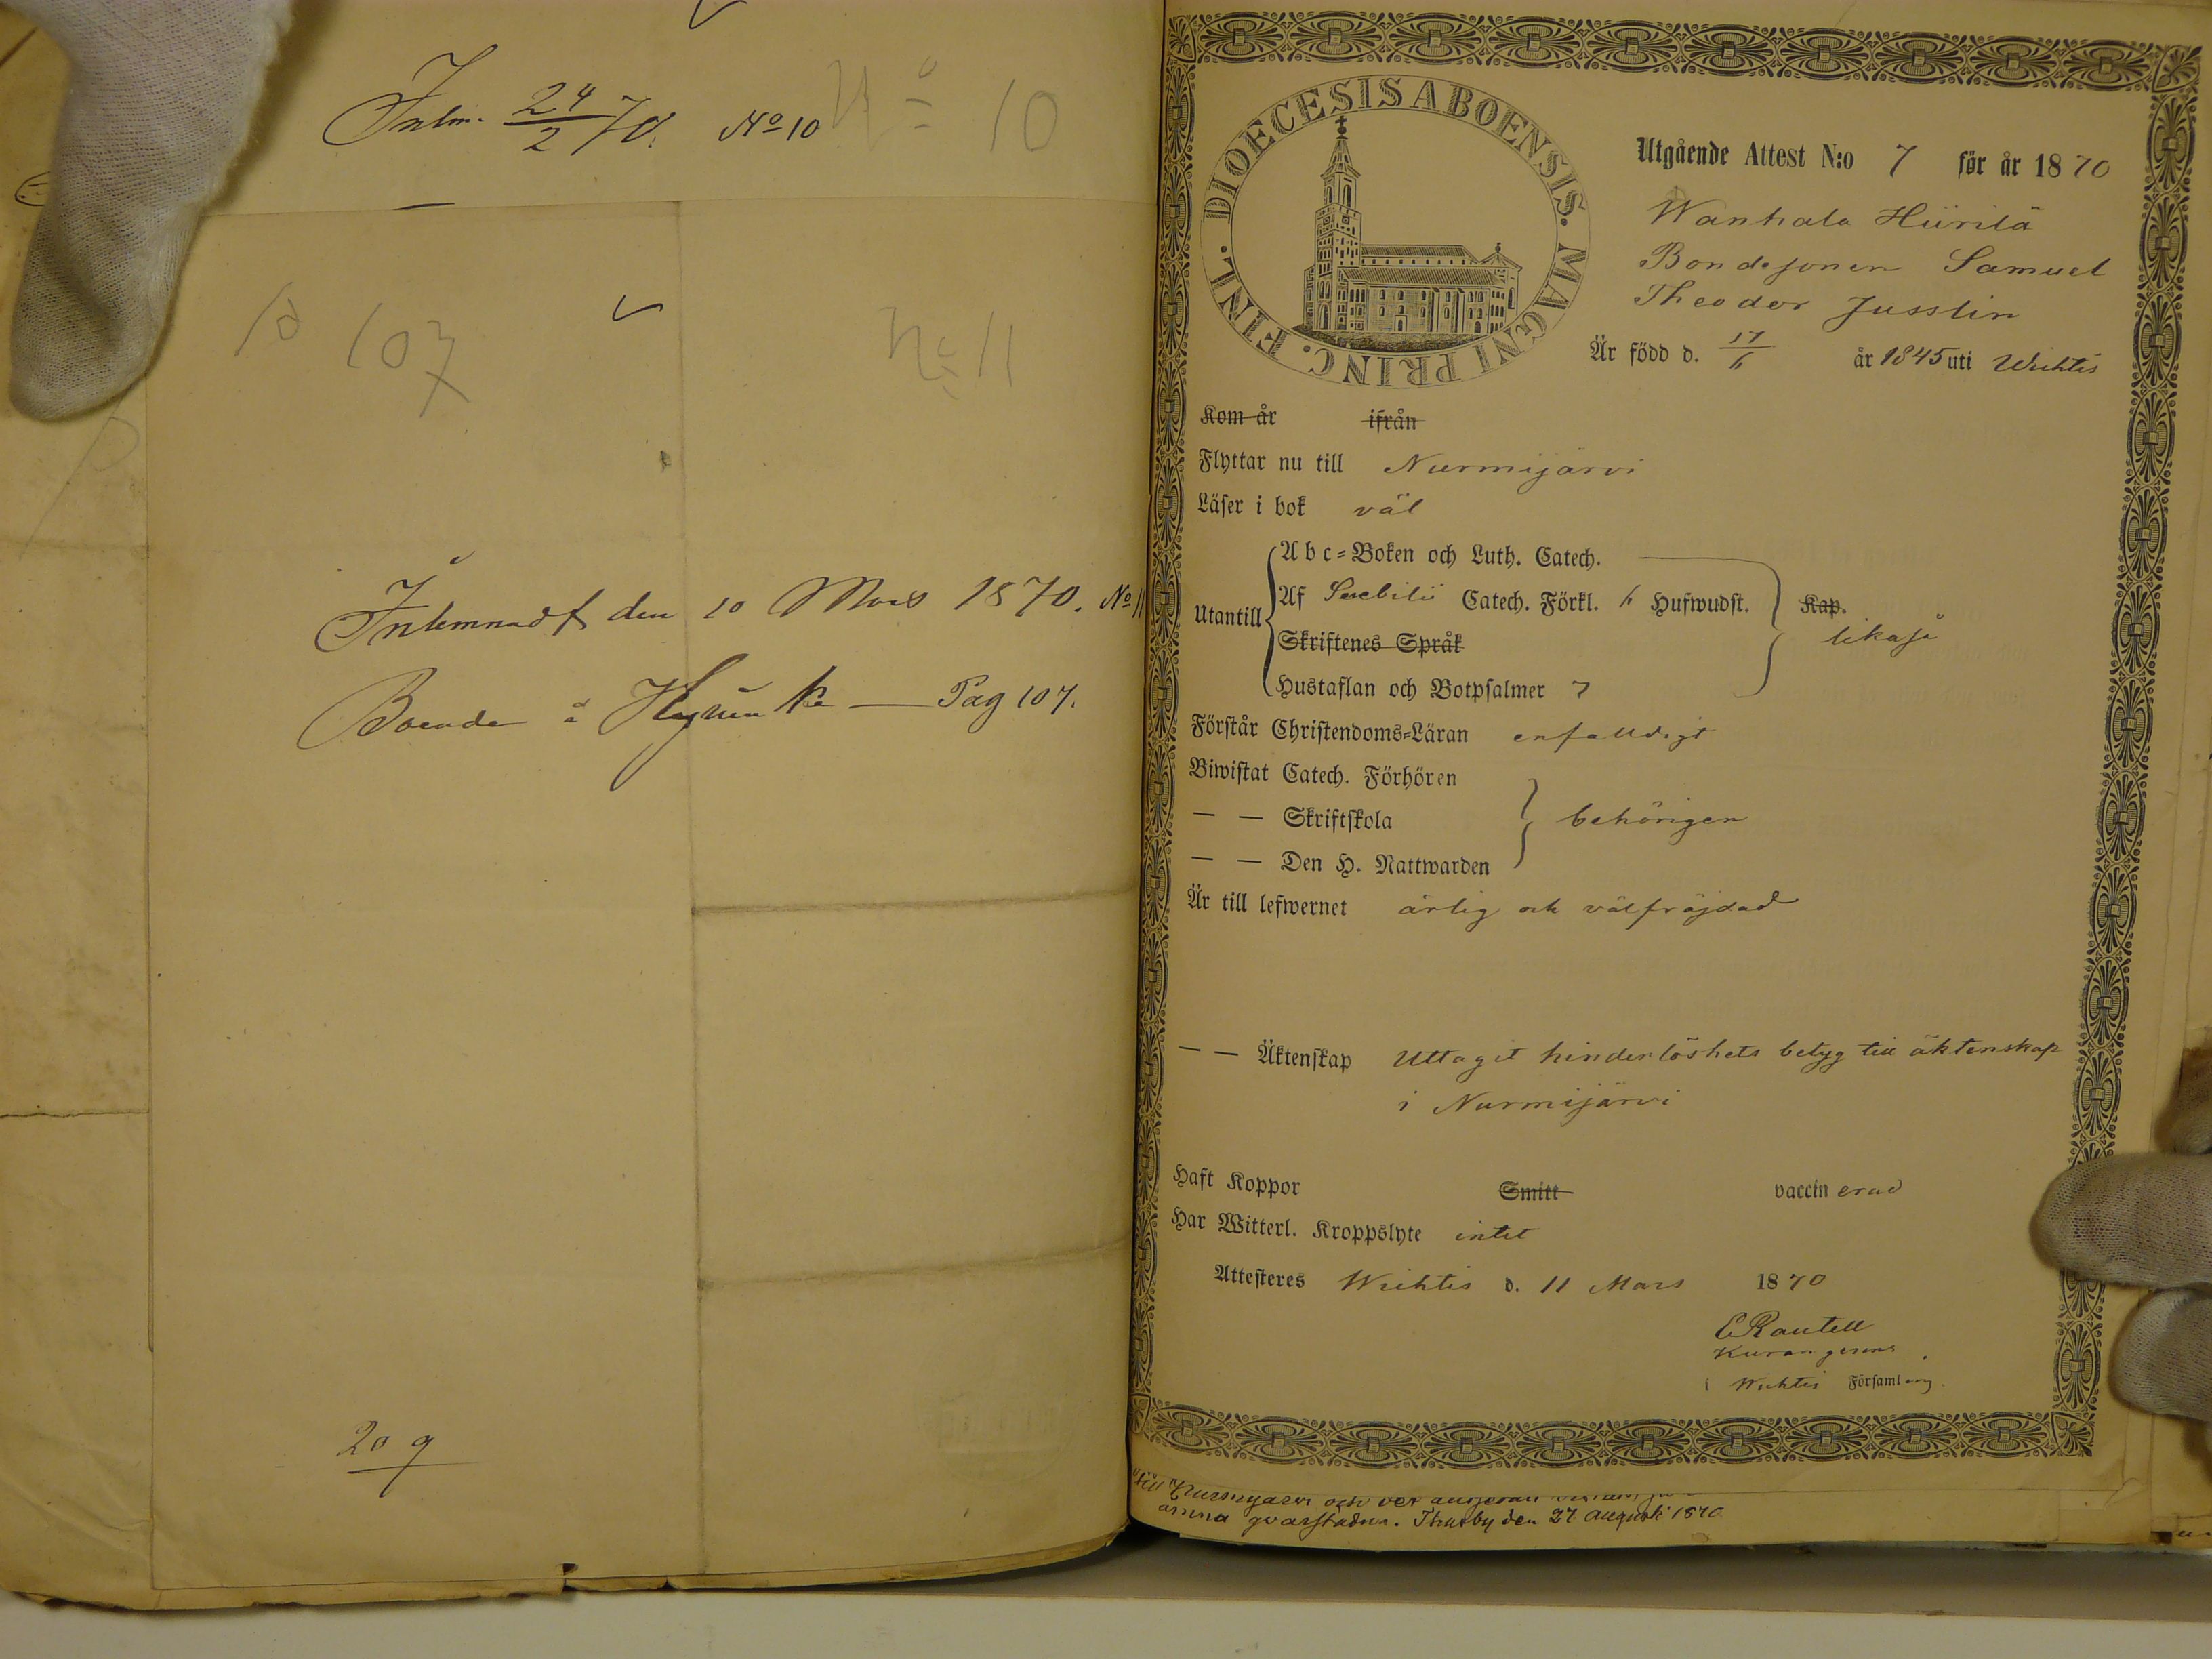 Inlm. 24/2 70. No 10
No 10
10 107
No 11
Inlemnadt den 10 Mars 1870. No 11
Boende å Hyvinke — Pag 107.
20 9
DIOECESIS ABOENSIS. MAGNI PRINC. FINL.
Utgående Attest N:o 7 för år 1870
Wanhala Hiirilä
Bondesonen Samuel
Theodor Jusslin
Är född d. 17/6 år 1845 uti Wichtis
Kom år ifrån
Flyttar nu till Nurmijärvi
Läser i bok väl
Utantill
Abc-Boken och Luth. Catech.
Af Serebilii Catech. Förkl. 6 Hufwudst.
Kap.
likaså
Skriftenes Språk
Hustaflan och Botpsalmer 7
Förstår Christendoms-Läran enfaldigt
Biwistat Catech. Förhören
— — Skriftskola behörigen
— — Den H. Nattwarden
Är till lefwernet ärlig och välfräjdad
— — Äktenskap Uttagit hinderlöshets betyg till äktenskap
i Nurmijärvi
Haft Koppor Smitt vaccinerad
Har Witterl. Kroppslyte intet
Attesteres Wichtis d. 11 Mars 1870
Wichtis Församling
till Nurmijärvi och der
den 27 Augusti 1870